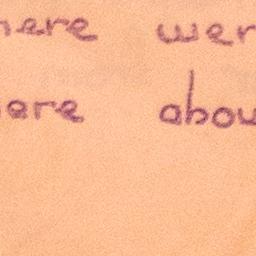 here wer
ere abou